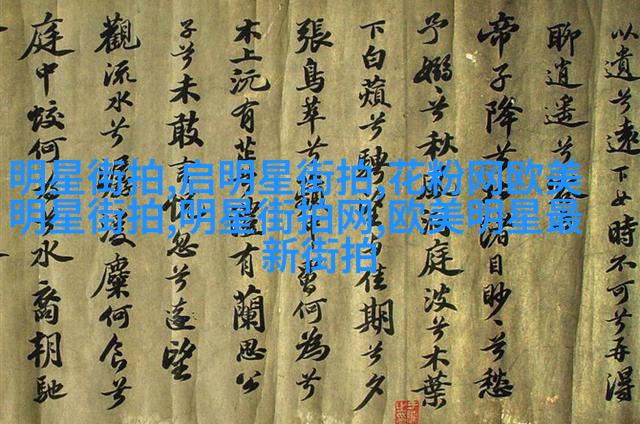 以遺兮遠下女時不可兮再得
聊逍遙兮
帝子降兮渚目眇眇兮愁
予嫋嫋兮秋庭波兮木葉
下白蘋兮騁佳期兮夕
張鳥萃兮罾何為兮
木上沅有芷有蘭思公
子兮未敢言忽兮遠望
觀流水兮潺湲麋何食兮
庭中蛟何水裔朝馳
明星街拍,启明星街拍,花粉网欧美
明星街拍,明星街拍网,欧美明星最
新街拍